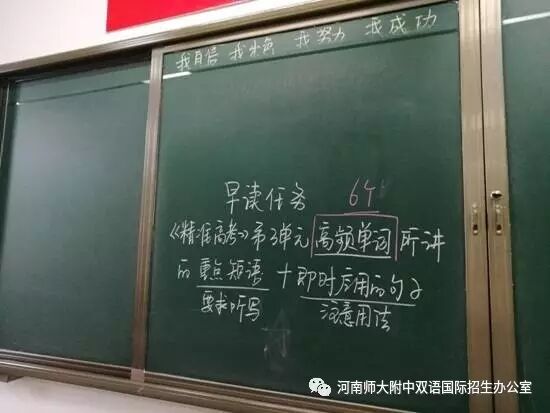 我自信 我出色 我努力 我成功
早读任务 64
《精准高考》第3单元 高频单词 所讲
的重点短语 + 即时应用的句子
要求听写 注意用法
河南师大附中双语国际招生办公室